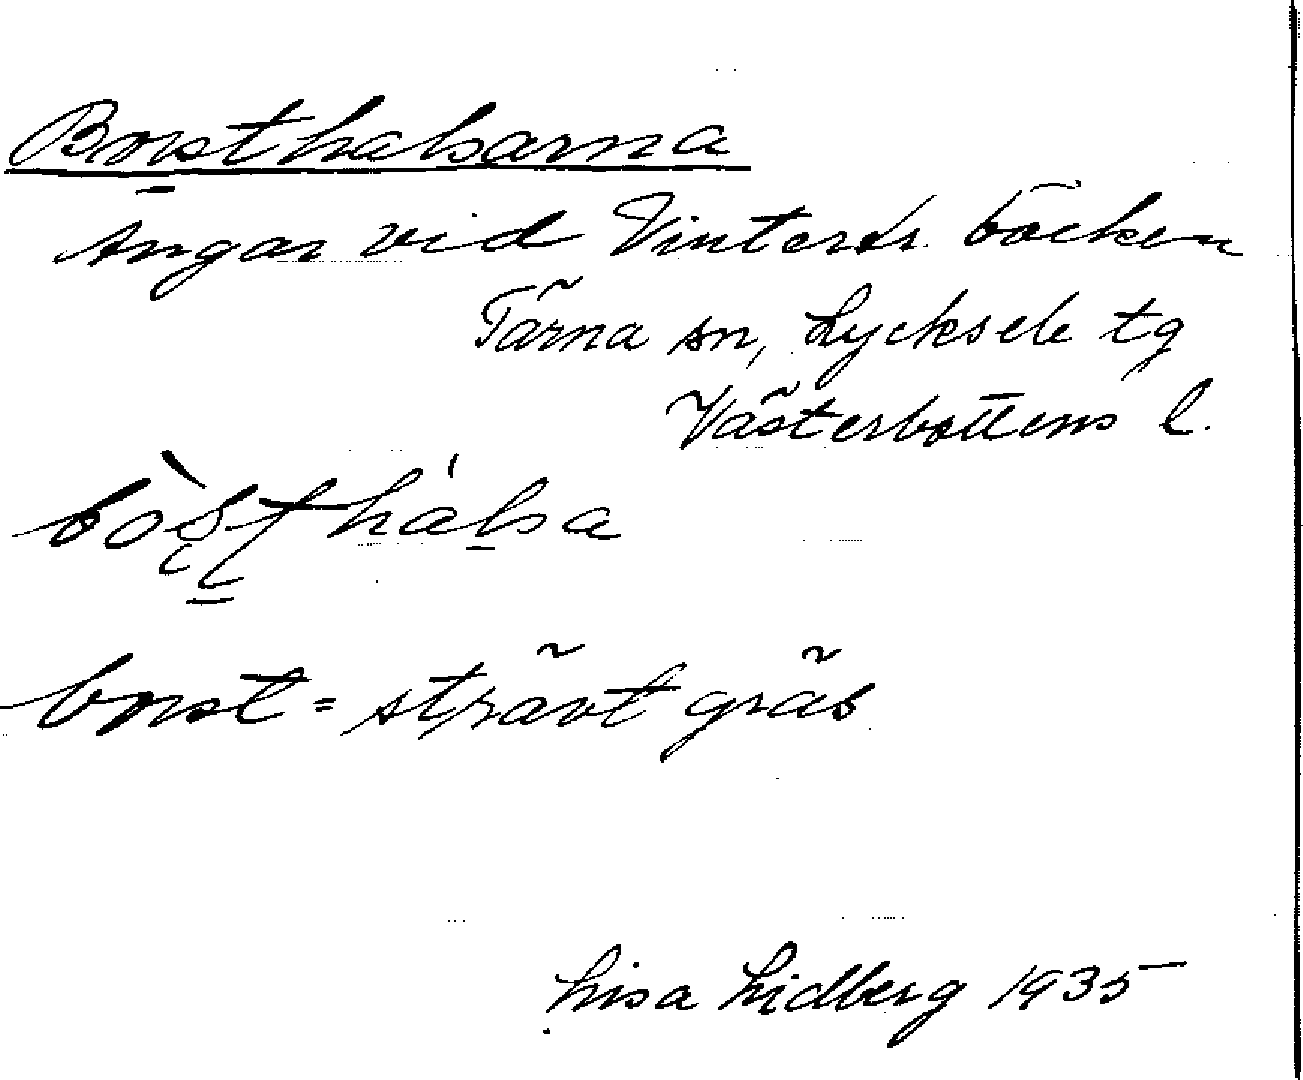 Borsthalsarna
ängar vid bäcken
Tärna sn, Lycksele tg
Västerbottens l.
borst = strävt gräs
Lisa Lidberg 1935